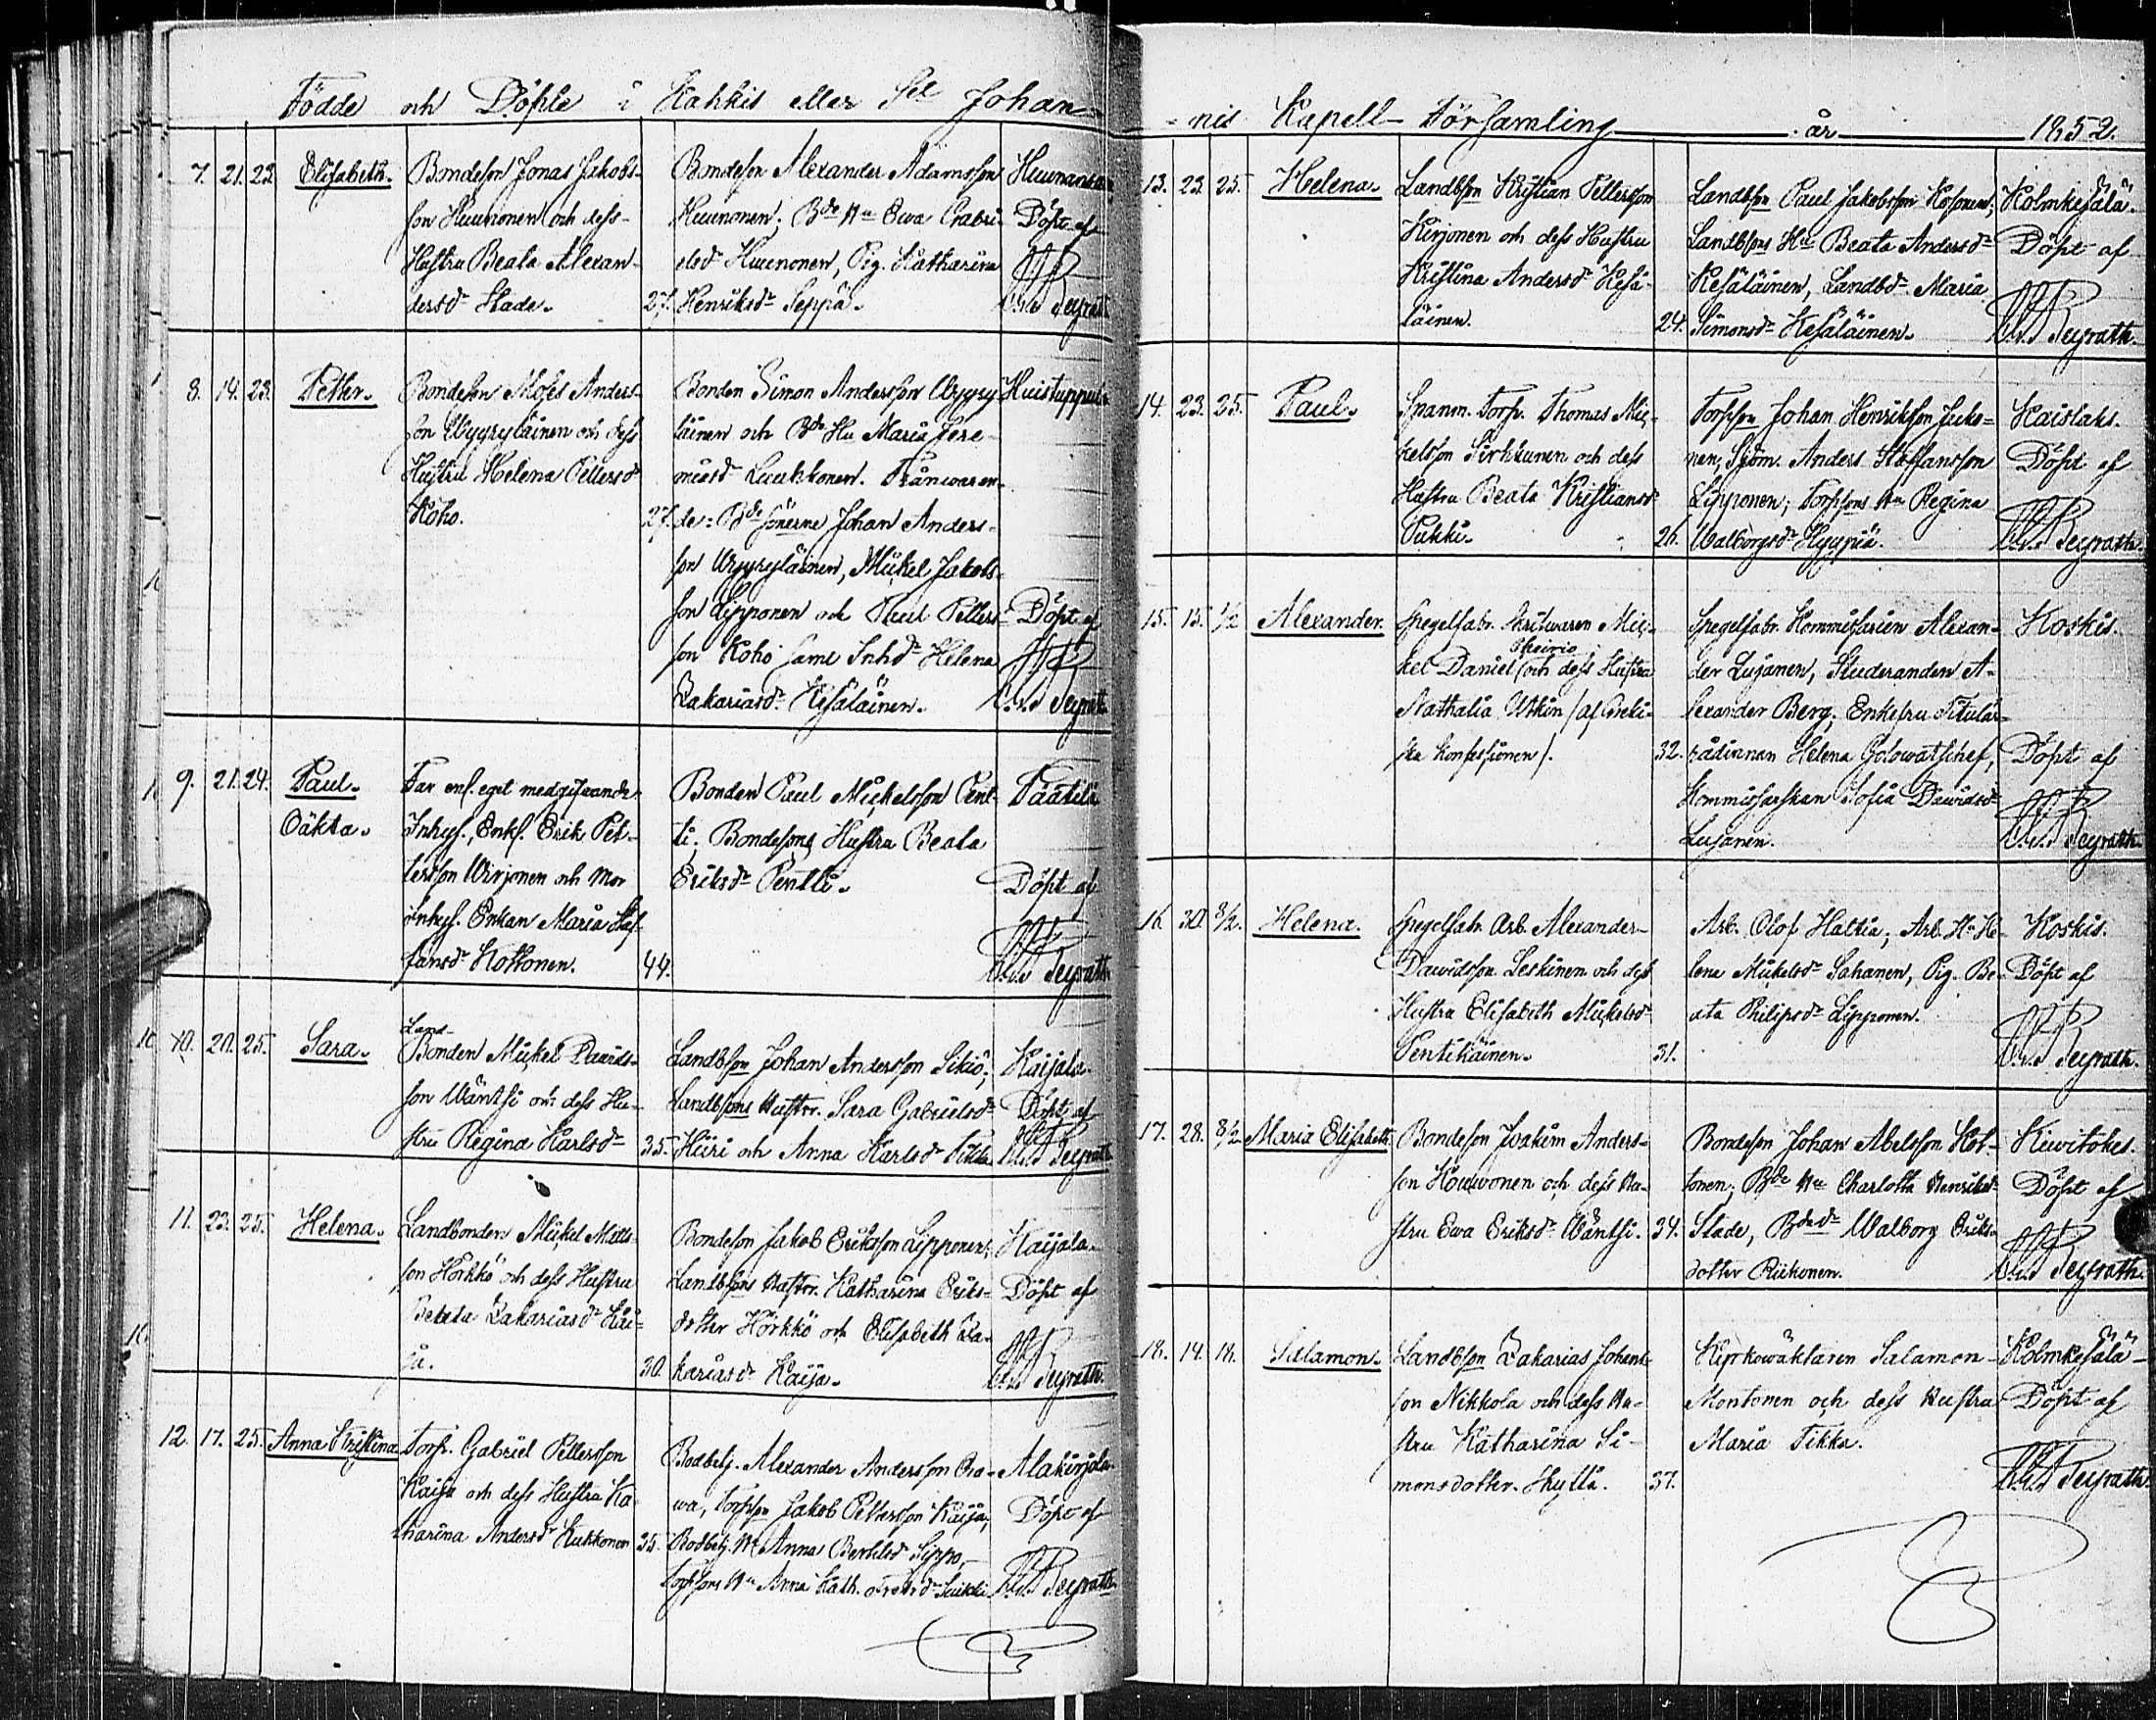 Födde och Döpte i Kakkis eller S:t Johan-
7. 21. 23. Elisabeth. Bondeson Jonas Jakobs-
son Huunonen och dess
Hustru Beata Alexan-
dersdr Stade. 27.
Bondeson Alexander Adamsson
Huunonen; Bde Hu Ewa Gabri-
elsd Huunonen, Pig. Katharina
Henriksdr Seppä.
Döpt af
8. 14. 23. Petter. Bondeson Moses Anders-
son Wygryläinen och dess
Hustru Helena Pettersdr
Koho. 27.
Bonden Simon Andersson Wygry
läinen och Bde Hu Maria Jere-
miasdr Luukkonen. Frånwaran-
de: Bde sönerne Johan Anders-
son Wygryläinen, Mickel Jakobs-
son Lipponen och Paul Petters-
son Koho samt Inhdr Helena
Zakariasdr Kesäläinen.
Döpt af
9. 21. 24. Paul.
Oäkta.
Far enl. eget medgifwande
Inhys. Enkl. Erik Pet-
tersson Wirjonen och Mor
Inhys. Enkan Maria Staf-
fansdr Kottonen. 44.
Bonden Paul Mickelsson Pent-
ti; Bondesons Hustru Beata
Eriksdr Pentti.
Döpt af
10. 20. 25. Sara. Land-
Bonden Mickel Davids-
son Wäntsi och dess Hu-
stru Regina Karlsdr 35.
Landbson Johan Andersson Sikiö;
Landbsons Hustr. Sara Gabrielsdr
Hiiri och Anna Karlsdr
Kaijala.
Döpt af
11. 23. 25. Helena. Landbonden Mickel Matts-
son Hörkkö och dess Hustru
Beata Zakariasdr Kai-
ja. 30.
Bondeson Jakob Eriksson Lipponen;
Landbsons Hustr. Katharina Eriks-
dotter Hörkkö och Elisabeth Za-
kariasdr Kaija.
Kaijala.
Döpt af
12. 17. 25. Anna Kristina. Torp. Gabriel Pettersson
Kaija och dess Hustru Ka-
tharina Andersdr Kukkonen 35.
Bodbetj. Alexander Andersson Ora-
wa, Torpson Jakob Pettersson Kaija;
Bodbetj. Hu Anna Bertilsd Sippo,
Torpsons Hu Anna Kath.
Alakirjola
Döpt af
-nis Kapell-Församling år 1852.
13. 23. 25. Helena. Landbson Kristian Pettersson
Kirjonen och dess Hustru
Kristina Andersdr Kesä-
läinen. 24.
Landbson Paul Jakobsson Kosonen;
Landbsons Hu Beata Andersdr
Kesäläinen, Landbdr Maria
Simonsdr Kesäläinen.
Kolmkesälä.
Döpt af
14. 23. 25. Paul. Spanm. Torp. Thomas Mic-
kelsson Sirkkunen och dess
Hustru Beata Kristiansdr
Pukki. 26.
Torpson Johan Henriksson
nen; Sjöm. Anders Staffansson
Lipponen; Torpsons Hu Regina
Walborgsdr Hyypiä.
Kaislaks.
Döpt af
15. 15. 1/2 Alexander. Spegelfabr. Skrifwaren Mic-
kel Daniel och dess Hustru
Nathalia Utkin (af Greki-
ska konfessionen). 32.
Spegelfabr. Kommissarien Alexan-
der Lusanen, Studeranden A-
lexander Berg, Enkefru Titulär-
rådinnan Helena Golowatschef,
Kommissarskan Sofia Davidsdr
Lusanen.
Koskis.
Döpt af
16. 30. 8/2. Helena. Spegelfabr. Arb. Alexander
Davidsson Leskinen och dess
Hustru Elisabeth Mickelsdr
Pentikäinen. 31.
Arb. Olof Haltia; Arb. Hu He-
lena Mickelsdr Sahanen, Pig. Be-
ata Philipsdr Lipponen.
Koskis.
Döpt af
17. 28. 8/2. Maria Elisabeth. Bondeson Joakim Anders-
son Kouwonen och dess Hu-
stru Ewa Eriksdr Wäntsi. 34.
Bondeson Johan Abelsson Kot-
tonen; Bde Hu Charlotta Henriksdr
Stade, Bdedr Walborg Eriks-
dotter Riikonen.
Kiwitokes.
Döpt af
18. 14. 18. Salamon. Landbson Zakarias Johans-
son Nikkola och dess Hu-
stru Katharina Si-
monsdotter Skyttä. 37.
Kyrkowäktaren Salamon
Montonen och dess Hustru
Maria Tikka.
Kolmkesälä
Döpt af